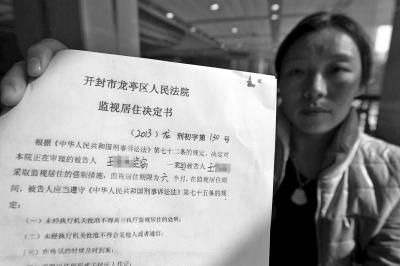 开封市龙亭区人民法院
监视居住决定书
（2013）龙 刑初字第 130 号
根据《中华人民共和国刑事诉讼法》第七十二条的规定，决定对
本院正在审理的被告人 王 一案的被告人 王
采取监视居住的强制措施，监视居住期限为 六 个月，在监视居住期
间，被告人应当遵守《中华人民共和国刑事诉讼法》第七十五条的规
定：
（一）未经执行机关批准不得离开执行监视居住的处所；
（二）未经执行机关批准不得会见他人或者通信；
（三）在传讯的时候及时到案；